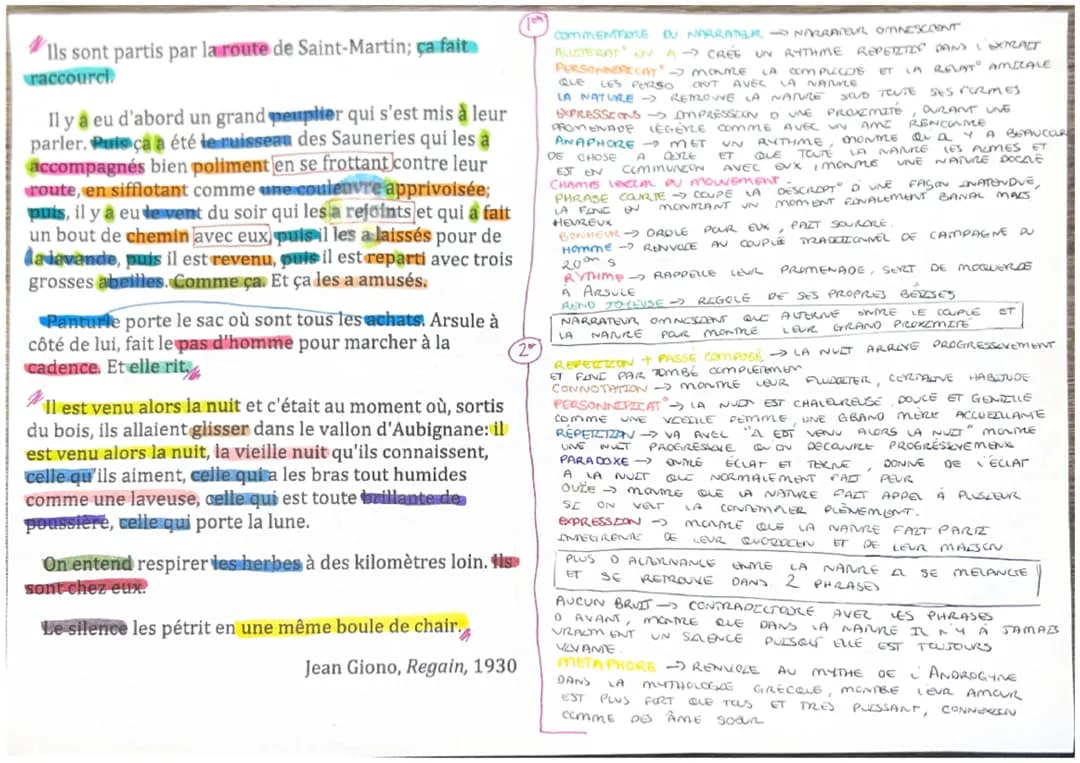 Ils sont partis par la route de Saint-Martin; ça fait
raccourci.
Il y a eu d'abord un grand peuplier qui s'est mis à leur
parler. Puis ça a été le ruisseau des Sauneries qui les a
accompagnés bien poliment en se frottant contre leur
route, en sifflotant comme une couleuvre apprivoisée;
puis, il y a eu le vent du soir qui les a rejoints et qui a fait
un bout de chemin avec eux, puis il les a laissés pour de
la lavande, puis il est revenu, puis il est reparti avec trois
grosses abeilles. Comme ça. Et ça les a amusés.
Panturle porte le sac où sont tous les achats. Arsule à
côté de lui, fait le pas d'homme pour marcher à la
cadence. Et elle rit.
Il est venu alors la nuit et c'était au moment où, sortis
du bois, ils allaient glisser dans le vallon d'Aubignane: il
est venu alors la nuit, la vieille nuit qu'ils connaissent,
celle qu'ils aiment, celle qui a les bras tout humides
comme une laveuse, celle qui est toute brillante de
poussière, celle qui porte la lune.
On entend respirer les herbes à des kilomètres loin. Ils
sont chez eux.
Le silence les pétrit en une même boule de chair.
Jean Giono, Regain, 1930
1er
COMMENTAIRE DU NARRATEUR → NARRATEUR OMNISCIENT
ALLITERAT° EN A → CRÉE UN RYTHME REPETITIF DANS L'EXTRAIT
PERSONNIFICAT° → MONTRE LA COMPLICITÉ ET LA RELAT° AMICALE
QUE LES PERSO ONT AVEC LA NATURE
LA NATURE → RETROUVE LA NATURE SOUS TOUTE SES FORMES
EXPRESSIONS → IMPRESSION D UNE PROXIMITÉ, DURANT UNE
PROMENADE LÉGÈRE COMME AVEC UN AMI RENCONTRE
ANAPHORE → MET UN RYTHME, MONTRE QU IL Y A BEAUCOUP
DE CHOSE A DIRE ET QUE TOUTE LA NATURE LES ADMES ET
EST EN COMMUNION AVEC EUX, MONTRE UNE NATURE DOCILE
CHAMPS LEXICAL DU MOUVEMENT.
PHRASE COURTE → COUPE LA DESCRIPT° D UNE FAÇON INATENDUE,
LA FINIE EN MONTRANT UN MOMENT FINALEMENT BANAL MAIS
HEUREUX
BONHEUR → DROLE POUR EUX, FAIT SOURIRE.
HOMME → RENVOIE AU COUPLE TRADITIONNEL DE CAMPAGNE DU
20ème S
RYTHME → RAPPELLE LEUR PROMENADE, SERT DE MOQUERIE
A ARSULE
REND JOYEUSE → RIGOLE DE SES PROPRES BÊTISES
NARRATEUR OMNISCIENT QUI ALTERNE ENTRE LE COUPLE ET
LA NATURE POUR MONTRE LEUR GRAND PROXIMITÉ
2e
REPETITION + PASSÉ COMPOSÉ → LA NUIT ARRIVE PROGRESSIVEMENT
ET FINI PAR TOMBÉ COMPLETEMEN
CONNOTATION → MONTRE LEUR FLUIDITER, CERTAINE HABITUDE
PERSONNIFICAT° → LA NUIT EST CHALEUREUSE, DOUCE ET GENTILLE
COMME UNE VIEILLE FEMME, UNE GRAND MÈRE ACCUEILLANTE
RÉPÉTITION → VA AVEC "IL EST VENU ALORS LA NUIT" MONTRE
UNE NUIT PROGRESSIVE QU ON DÉCOUVRE PROGRÉSSIVEMENT
PARADOXE → ENTRE ÉCLAT ET TERNE, DONNE DE L'ÉCLAT
A LA NUIT QUI NORMALEMENT FAIT PEUR
OUÏE → MONTRE QUE LA NATURE FAIT APPEL À PLUSIEUR
SI ON VEUT LA CONTEMPLER PLÈNEMENT.
EXPRESSION → MONTRE QUE LA NATURE FAIT PARTIE
INTEGRENTE DE LEUR QUOTIDIEN ET DE LEUR MAISON
PLUS D ALTERNANCE ENTRE LA NATURE IL SE MELANGE
ET SE RETROUVE DANS 2 PHRASES
AUCUN BRUIT → CONTRADICTOIRE AVER LES PHRASES
D AVANT, MONTRE QUE DANS LA NATURE IL N Y À JAMAIS
VRAIMENT UN SILENCE PUISQU' ELLE EST TOUJOURS
VIVANTE.
METAPHORE → RENVOIE AU MYTHE DE L'ANDROGYNE
DANS LA MYTHOLOGIE GRÈCQUE, MONTRE LEUR AMOUR
EST PLUS FORT QUE TOUS ET TRÈS PUISSANT, CONNEXION
COMME DES ÂME SOEUR